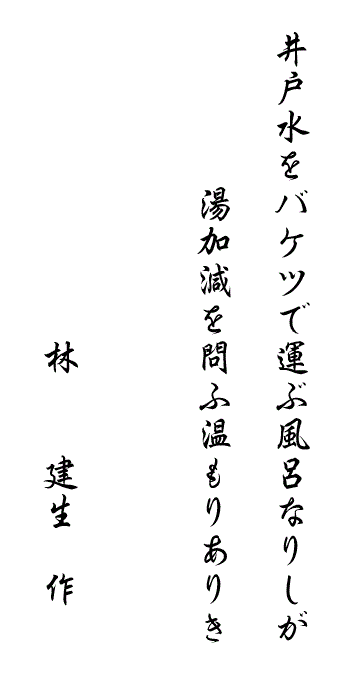 井戸水をバケツで運ぶ風呂なりしが
湯加減を問ふ温もりありき
林　建生　作